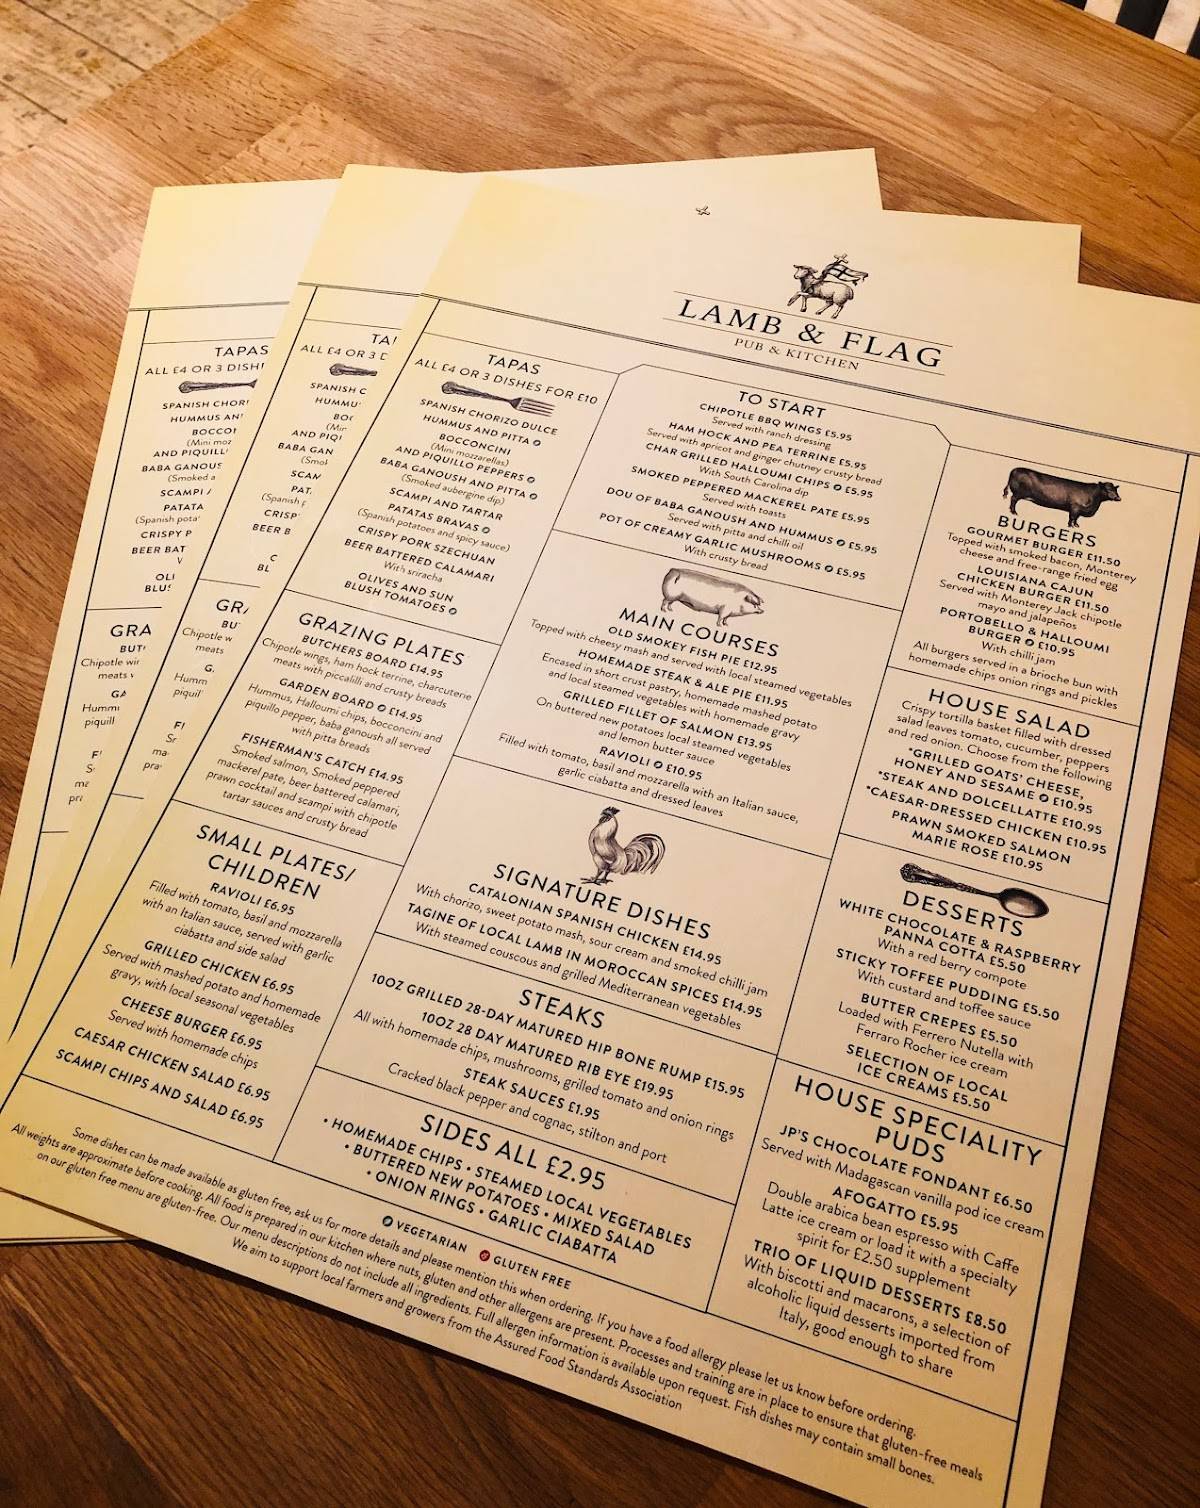 LAMB & FLAG
PUB & KITCHEN
TAPAS
ALL £4 OR 3 DISHES FOR £10
SPANISH CHORIZO DULCE
HUMMUS AND PITTA
BOCCONCINI
(Mini mozzarellas)
AND PIQUILLO PEPPERS
BABA GANOUSH AND PITTA
(Smoked aubergine dip)
SCAMPI AND TARTAR
PATATAS BRAVAS
(Spanish potatoes and spicy sauce)
CRISPY PORK SZECHUAN
BEER BATTERED CALAMARI
With sriracha
OLIVES AND SUN
BLUSH TOMATOES
GRAZING PLATES
BUTCHERS BOARD £14.95
Chipotle wings, ham hock terrine, charcuterie
meats with piccalilli and crusty breads
GARDEN BOARD £14.95
Hummus, Halloumi chips, bocconcini and
piquillo pepper, baba ganoush all served
with pitta breads
FISHERMAN'S CATCH £14.95
Smoked salmon, Smoked peppered
mackerel pate, beer battered calamari,
prawn cocktail and scampi with chipotle
tartar sauces and crusty bread
SMALL PLATES/
CHILDREN
RAVIOLI £6.95
Filled with tomato, basil and mozzarella
with an Italian sauce, served with garlic
ciabatta and side salad
GRILLED CHICKEN £6.95
Served with mashed potato and homemade
gravy, with local seasonal vegetables
CHEESE BURGER £6.95
Served with homemade chips
CAESAR CHICKEN SALAD £6.95
SCAMPI CHIPS AND SALAD £6.95
TO START
CHIPOTLE BBQ WINGS £5.95
Served with ranch dressing
HAM HOCK AND PEA TERRINE £5.95
Served with apricot and ginger chutney crusty bread
CHAR GRILLED HALLOUMI CHIPS £5.95
With South Carolina dip
SMOKED PEPPERED MACKEREL PATE £5.95
Served with toasts
DOU OF BABA GANOUSH AND HUMMUS £5.95
Served with pitta and chilli oil
POT OF CREAMY GARLIC MUSHROOMS £5.95
With crusty bread
MAIN COURSES
OLD SMOKEY FISH PIE £12.95
Topped with cheesy mash and served with local steamed vegetables
HOMEMADE STEAK & ALE PIE £11.95
Encased in short crust pastry, homemade mashed potato
and local steamed vegetables with homemade gravy
GRILLED FILLET OF SALMON £13.95
On buttered new potatoes local steamed vegetables
and lemon butter sauce
RAVIOLI £10.95
Filled with tomato, basil and mozzarella with an Italian sauce,
garlic ciabatta and dressed leaves
SIGNATURE DISHES
CATALONIAN SPANISH CHICKEN £14.95
With chorizo, sweet potato mash, sour cream and smoked chilli jam
TAGINE OF LOCAL LAMB IN MOROCCAN SPICES £14.95
With steamed couscous and grilled Mediterranean vegetables
STEAKS
10OZ GRILLED 28-DAY MATURED HIP BONE RUMP £15.95
10OZ 28 DAY MATURED RIB EYE £19.95
All with homemade chips, mushrooms, grilled tomato and onion rings
STEAK SAUCES £1.95
Cracked black pepper and cognac, stilton and port
SIDES ALL £2.95
• HOMEMADE CHIPS • STEAMED LOCAL VEGETABLES
• BUTTERED NEW POTATOES • MIXED SALAD
• ONION RINGS • GARLIC CIABATTA
BURGERS
GOURMET BURGER £11.50
Topped with smoked bacon, Monterey
cheese and free-range fried egg
LOUISIANA CAJUN
CHICKEN BURGER £11.50
Served with Monterey Jack chipotle
mayo and jalapeños
PORTOBELLO & HALLOUMI
BURGER £10.95
With chilli jam
All burgers served in a brioche bun with
homemade chips onion rings and pickles
HOUSE SALAD
Crispy tortilla basket filled with dressed
salad leaves tomato, cucumber, peppers
and red onion. Choose from the following
*GRILLED GOATS' CHEESE,
HONEY AND SESAME £10.95
*STEAK AND DOLCELLATTE £10.95
*CAESAR-DRESSED CHICKEN £10.95
PRAWN SMOKED SALMON
MARIE ROSE £10.95
DESSERTS
WHITE CHOCOLATE & RASPBERRY
PANNA COTTA £5.50
With a red berry compote
STICKY TOFFEE PUDDING £5.50
With custard and toffee sauce
BUTTER CREPES £5.50
Loaded with Ferrero Nutella with
Ferraro Rocher ice cream
SELECTION OF LOCAL
ICE CREAMS £5.50
HOUSE SPECIALITY
PUDS
JP'S CHOCOLATE FONDANT £6.50
Served with Madagascan vanilla pod ice cream
AFOGATTO £5.95
Double arabica bean espresso with Caffe
Latte ice cream or load it with a specialty
spirit for £2.50 supplement
TRIO OF LIQUID DESSERTS £8.50
With biscotti and macarons, a selection of
alcoholic liquid desserts imported from
Italy, good enough to share
VEGETARIAN GLUTEN FREE
Some dishes can be made available as gluten free, ask us for more details and please mention this when ordering. If you have a food allergy please let us know before ordering.
All weights are approximate before cooking. All food is prepared in our kitchen where nuts, gluten and other allergens are present. Processes and training are in place to ensure that gluten-free meals
on our gluten free menu are gluten-free. Our menu descriptions do not include all ingredients. Full allergen information is available upon request. Fish dishes may contain small bones.
We aim to support local farmers and growers from the Assured Food Standards Association